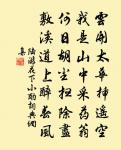 雲開太華插遙空
我是山中采葯翁
何日胡塵掃除盡
敷溪道上醉春風
陸游花下小酌詞典網
集